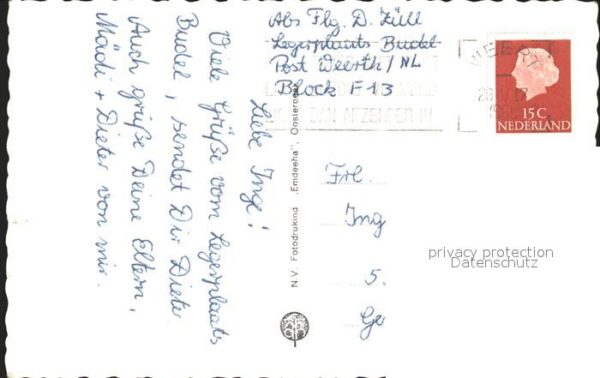 Abs Flg. D. Züll
Legerplaats Budel
Post Weerth/NL
Block F 13
WEERT
15C
NEDERLAND
DEN AFZENDER IN
Liebe Inge!
Viele Grüße vom Legerplaats
Budel, sendet Dir Dieter
Auch grüße Deine Eltern,
Mädi + Dieter von mir.
N.V. Fotodrukind „Emdeeha", Oosterbeek
Frl.
Ing
5.
Ge
privacy protection
Datenschutz